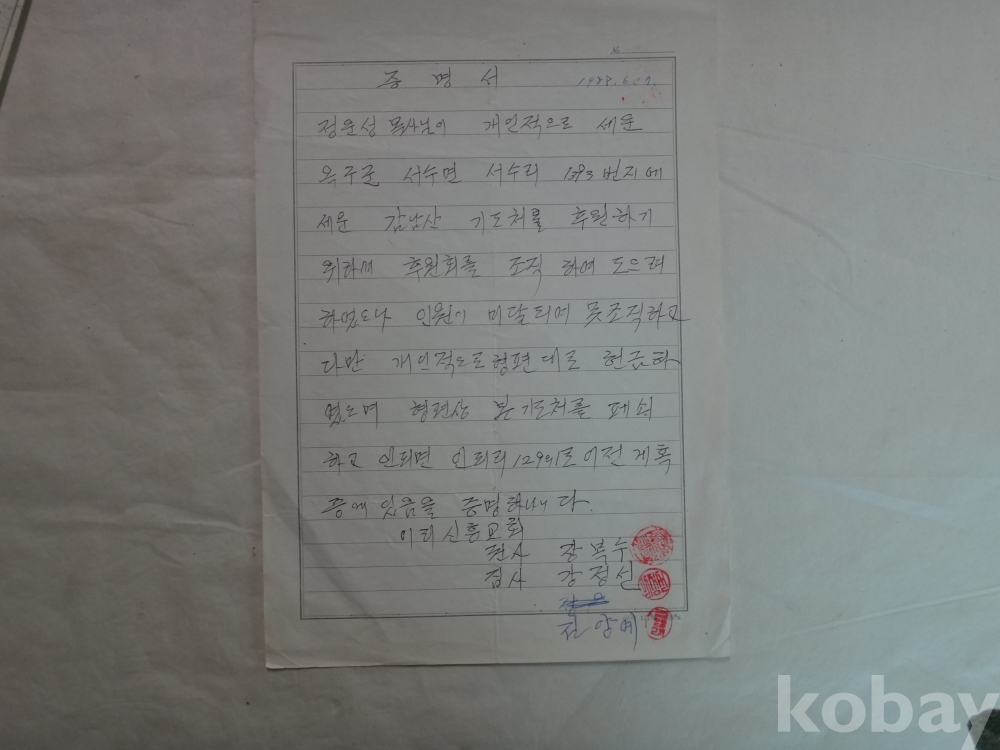 №
증명서 1988. 6. 27.
정운성 목사님이 개인적으로 세운
옥구군 서수면 서수리 1393번지에
세운 감남산 기도처를 후원하기
위하여 후원회를 조직 하여 도으려
하였으나 인원이 미달되어 못조직하고
다만 개인적으로 형편대로 헌금하
였으며 형편상 본 기도처를 폐쇠
하고 인피면 인피리 129의1로 이전 계획
중에 있음을 증명합니다.
이리신흥교회
권사 장복수
집사 강정선
전양예
kobay